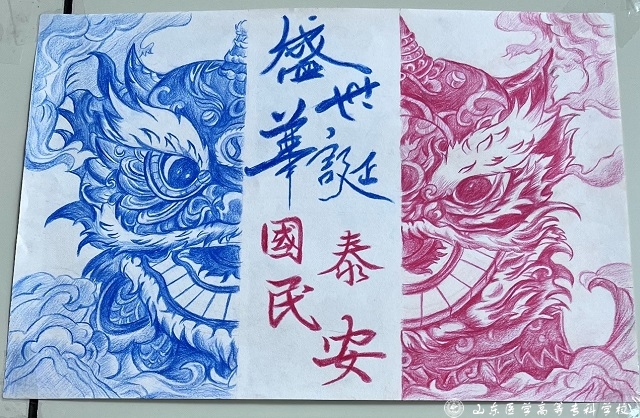 盛世華誕
國泰民安
山东医学高等专科学校